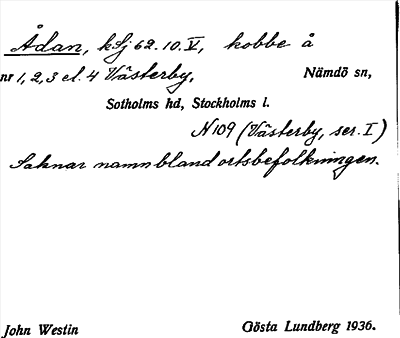 Ådan, kSj 62.10.V, kobbe å
nr 1, 2, 3 el. 4 Västerby, Nämdö sn,
Sotholms hd, Stockholms l.
N 109 (Västerby, ser. I)
Saknar namn bland ortsbefolkningen.
John Westin Gösta Lundberg 1936.